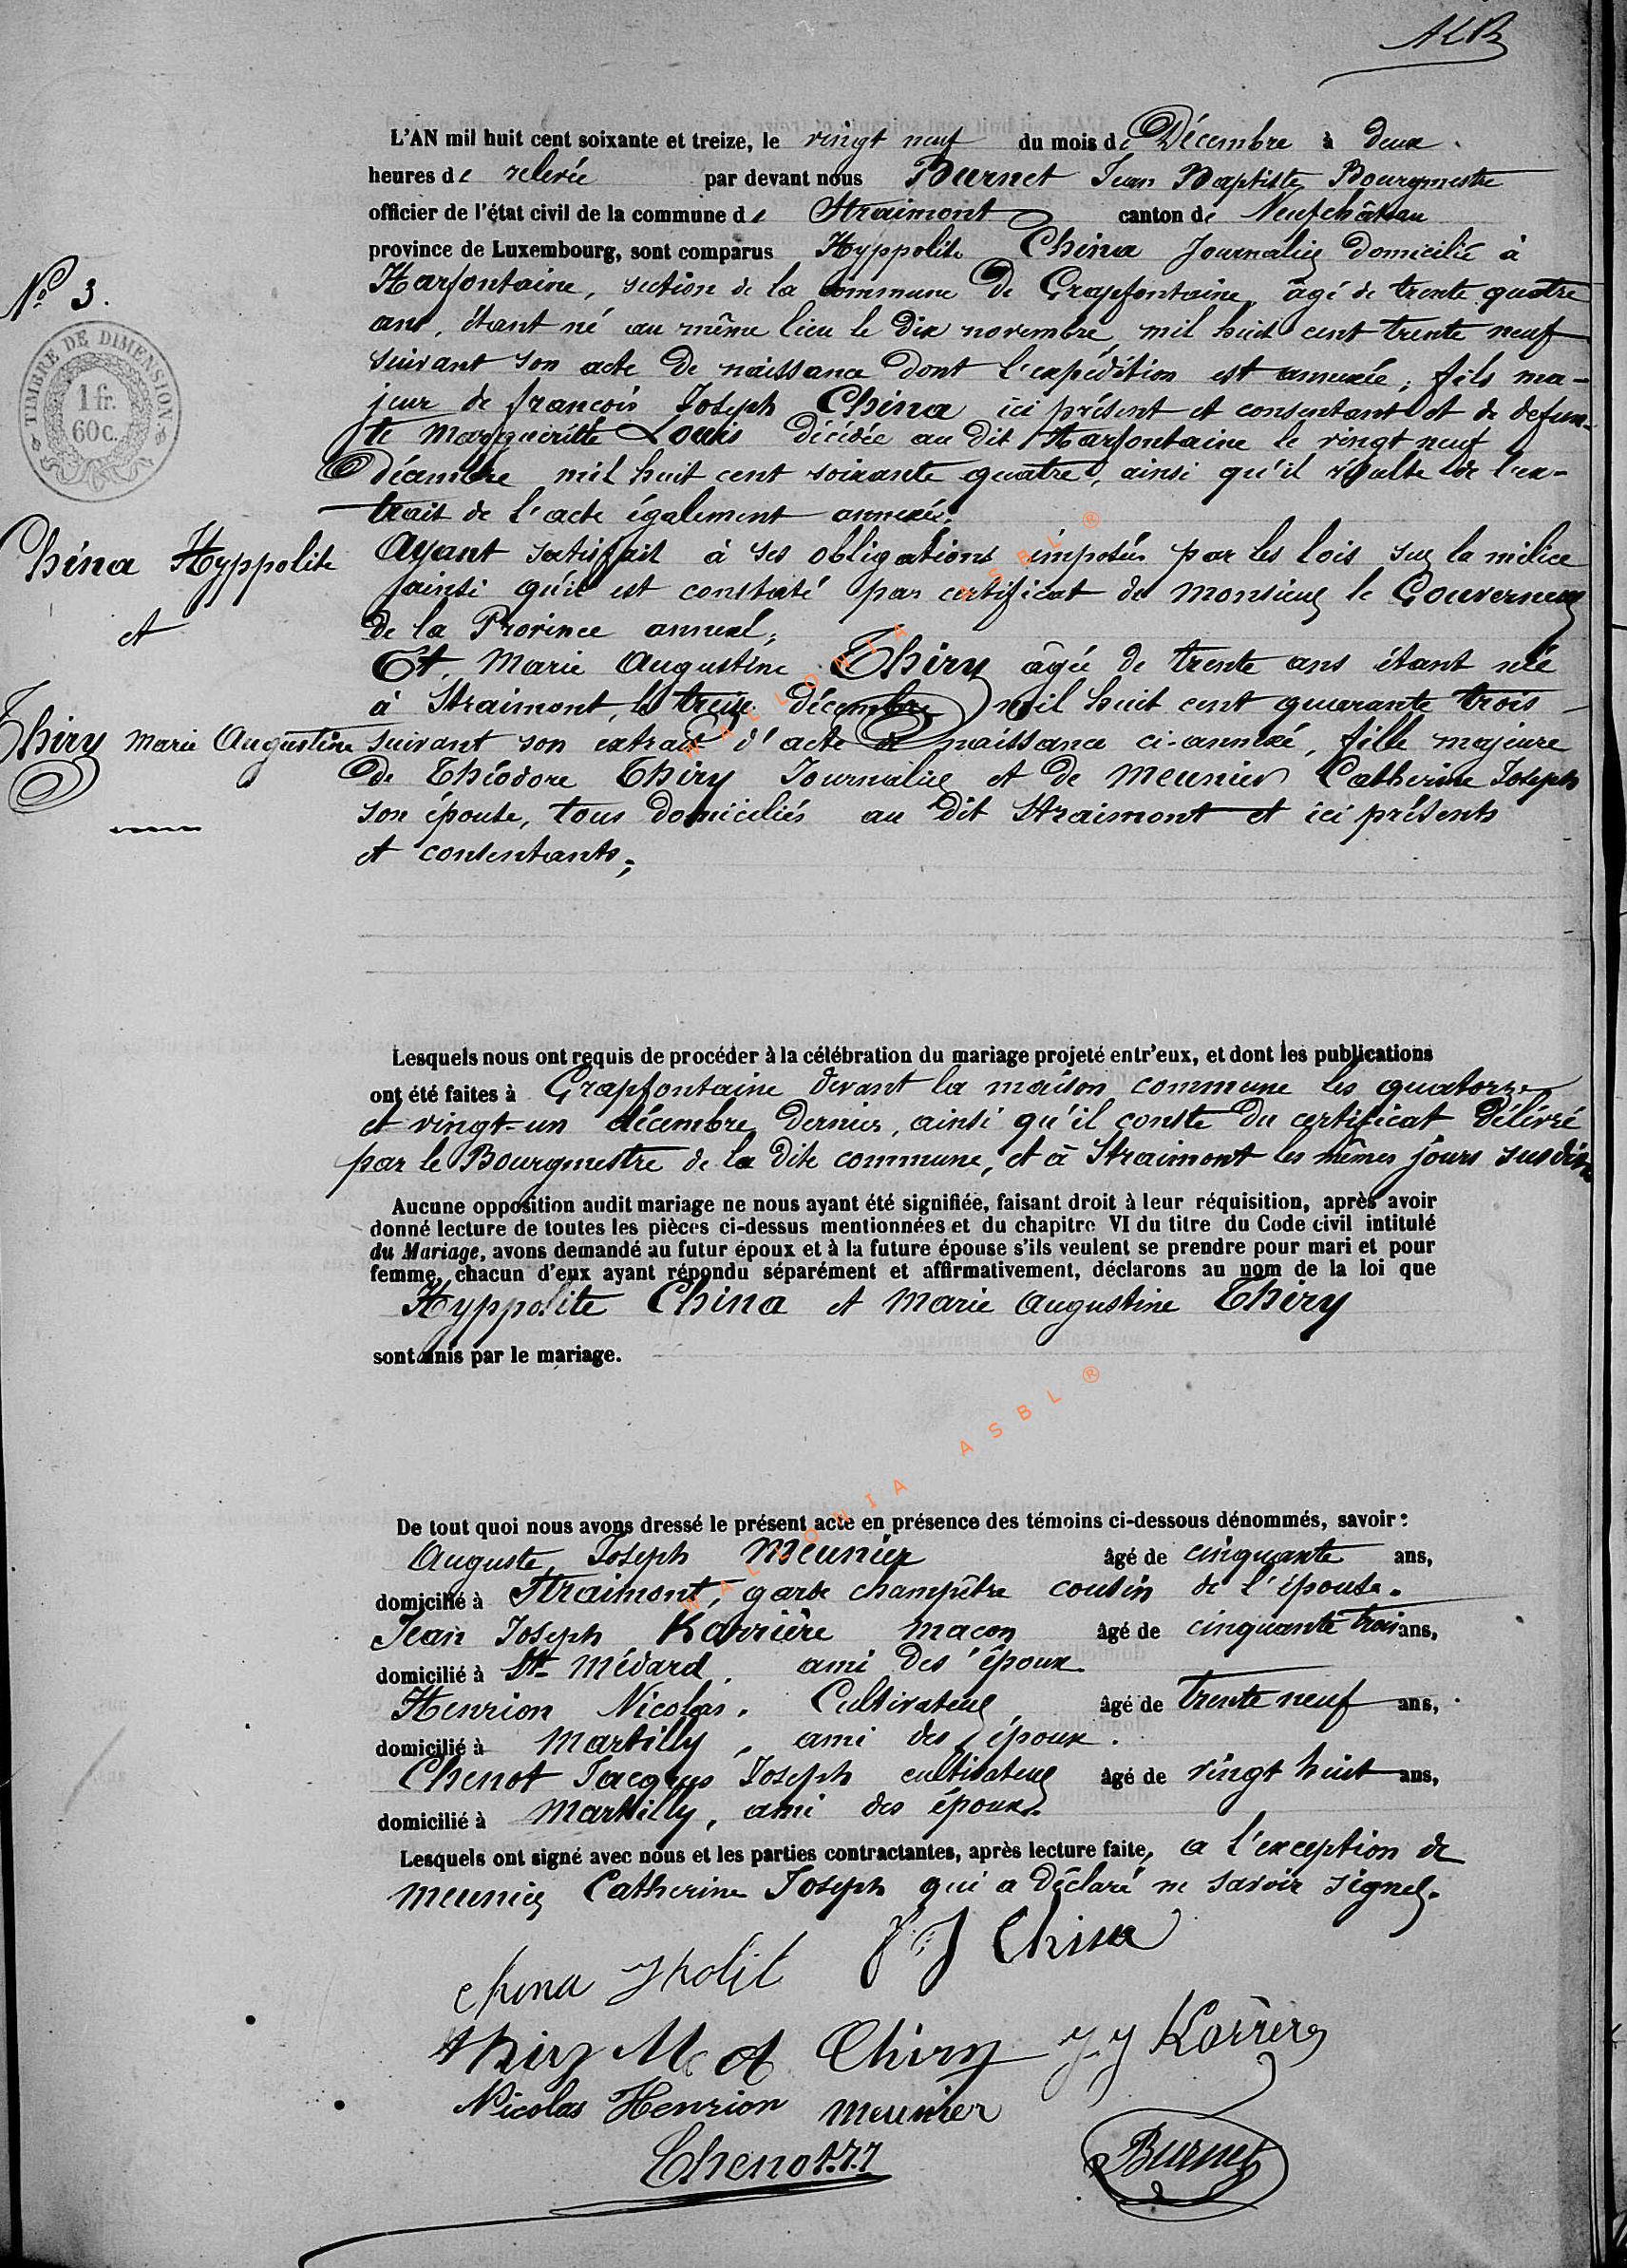 ALB
L'AN mil huit cent soixante et treize, le vingt neuf du mois de Décembre à deux
heures de relevée par devant nous Burnet Jean Baptiste Bourgmestre
officier de l'état civil de la commune de Straimont canton de Neufchâteau
province de Luxembourg, sont comparus Hyppolite China Journalier domicilié à
Harfontaine, section de la commune de Grapfontaine, âgé de trente quatre
ans, étant né au même lieu le dix novembre mil huit cent trente neuf
suivant son acte de naissance dont l'expédition est annexée; fils ma-
jeur de françois Joseph China ici présent et consentant et de défun-
te Margueritte Louis décédée au dit Harfontaine le vingt neuf
décembre mil huit cent soixante quatre, ainsi qu'il résulte de l'ex-
trait de l'acte également annexée.
Ayant satisfait à ses obligations imposées par les lois sur la milice
ainsi qu'il est constaté par certificat de monsieur le Gouverneur
de la Province annexé;
Et Marie Augustine Thiry âgée de trente ans étant née
à Straimont, le treize décembre mil huit cent quarante trois
suivant son extrait d'acte de naissance ci-annexé, fille majeure
de Théodore Thiry Journalier et de Meunier Catherine Joseph
son épouse, tous domiciliés au dit Straimont et ici présents
et consentants;
N° 3.
TIMBRE DE DIMENSION
1 fr.
60 c.
China Hyppolite
et
Thiry Marie Augustine
Lesquels nous ont requis de procéder à la célébration du mariage projeté entr'eux, et dont les publications
ont été faites à Grapfontaine devant la maison commune les quatorze
et vingt-un décembre dernier, ainsi qu'il conste du certificat délivré
par le Bourgmestre de la dite commune, et à Straimont les mêmes jours susdits
Aucune opposition audit mariage ne nous ayant été signifiée, faisant droit à leur réquisition, après avoir
donné lecture de toutes les pièces ci-dessus mentionnées et du chapitre VI du titre du Code civil intitulé
du Mariage, avons demandé au futur époux et à la future épouse s'ils veulent se prendre pour mari et pour
femme, chacun d'eux ayant répondu séparément et affirmativement, déclarons au nom de la loi que
Hyppolite China et Marie Augustine Thiry
sont unis par le mariage.
De tout quoi nous avons dressé le présent acte en présence des témoins ci-dessous dénommés, savoir:
Auguste Joseph Meunier âgé de cinquante ans,
domicilié à Straimont, garde champêtre cousin de l'épouse.
Jean Joseph Karrière macon âgé de cinquante trois ans,
domicilié à St Médard, ami des époux
Henrion Nicolas, Cultivateur âgé de trente neuf ans,
domicilié à Martilly, ami des époux.
Chenot Jacques Joseph cultivateur âgé de vingt huit ans,
domicilié à Martilly, ami des époux.
Lesquels ont signé avec nous et les parties contractantes, après lecture faite, a l'exception de
Meunier Catherine Joseph qui a déclaré ne savoir signer.
F J China
china Ipolit
thiry M A Thiry J J Karrière
Nicolas Henrion Meunier
Chenot J.J Burnet
WALLONIA ASBL ®
WALLONIA ASBL ®